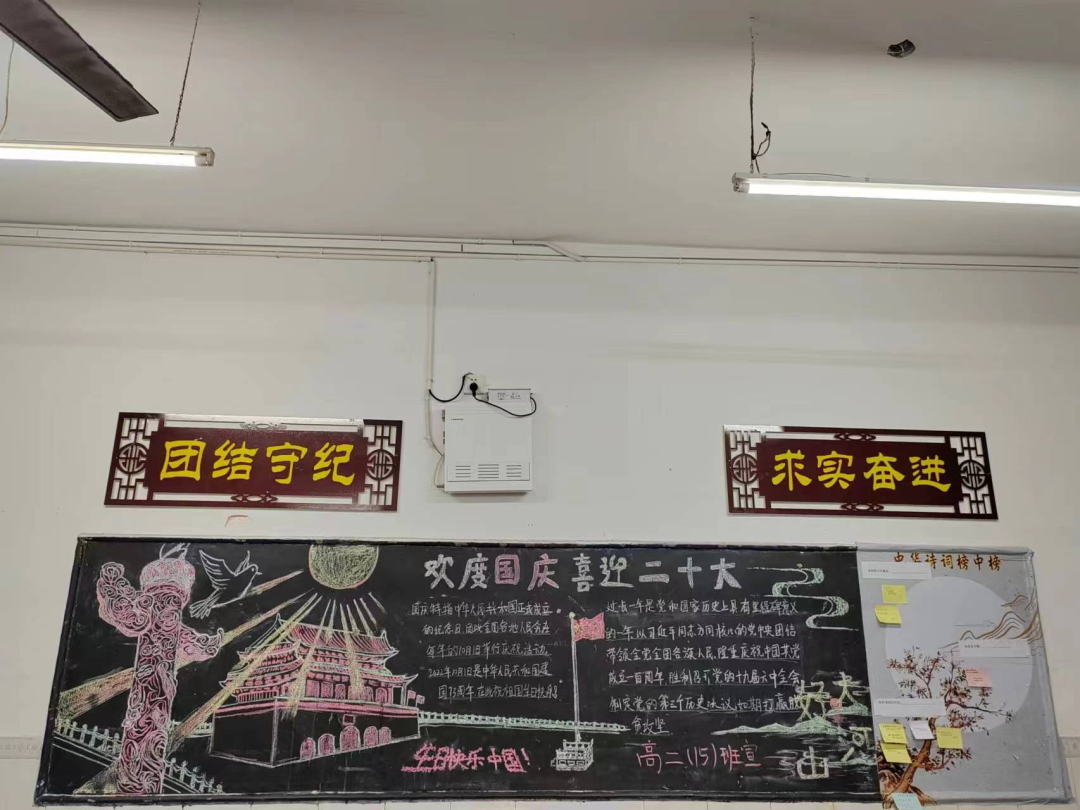 团结守纪
求实奋进
欢度国庆 喜迎二十大
国庆特指中华人民共和国正式成立
的纪念日,因此全国各地人民会在
每年的10月1日举行庆祝活动。
2022年10月1日是中华人民共和国建
国73周年在此祝祖国生日快乐!
过去一年是党和国家历史上具有里程碑意义
的一年,以习近平同志为核心的党中央团结
带领全党全国各族人民,隆重庆祝中国共产党
成立一百周年,胜利召开党的十九届六中全会
制定党的第三个历史决议,如期打赢脱
贫攻坚
生日快乐中国!
高二(15)班宣
好
河
山
中华诗词榜中榜